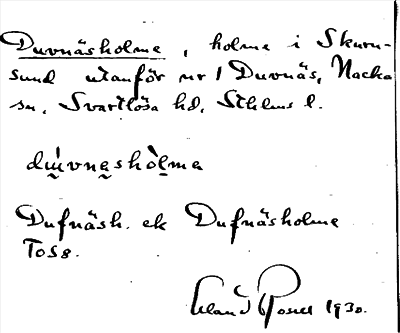 Duvnäsholme, holme i Skuru-
sund utanför nr 1 Duvnäs, Nacka
sn, Svartlösa hd, Sthlms l.
dɯ́vnashòlma
Dufnäsh. ek Dufnäsholme
Tos8.
Erland Rosell 1930.